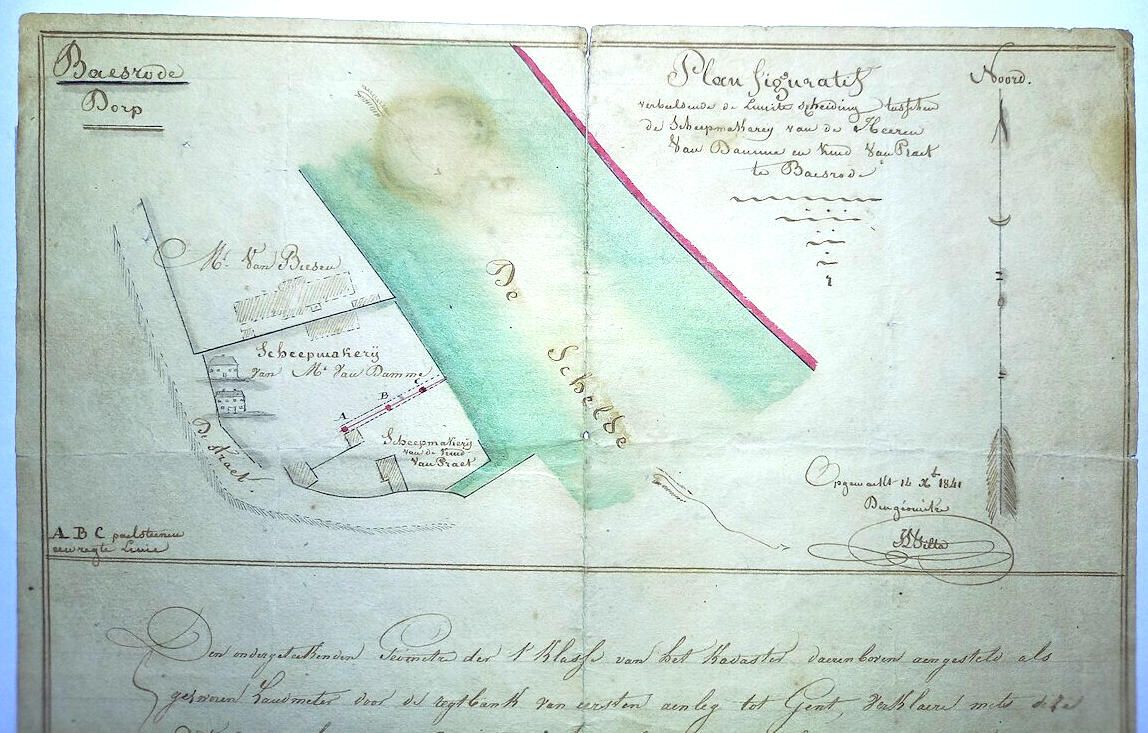 Baesrode
Dorp
Plan figuratif
verbeeldende de Limite scheiding tusschen
de Scheepmakery van de Heeren
Van Damme en Kind Van Praet
te Baesrode
Noord.
Mr. Van Biesen
De
Schelde
Scheepmakerij
van Mr Van Damme
A
B
C
Scheepmakerij
van de Kind
Van Praet
De straet.
Opgemaekt 14 Xt 1841
A B C paelsteenen
eene regte Linie
Den ondergeteekenden der 1e Klasse van het Kadaster daerenboven aengesteld als
gezworen Landmeter door de regtbank van eersten aenleg tot Gent, Verklaere mits deze